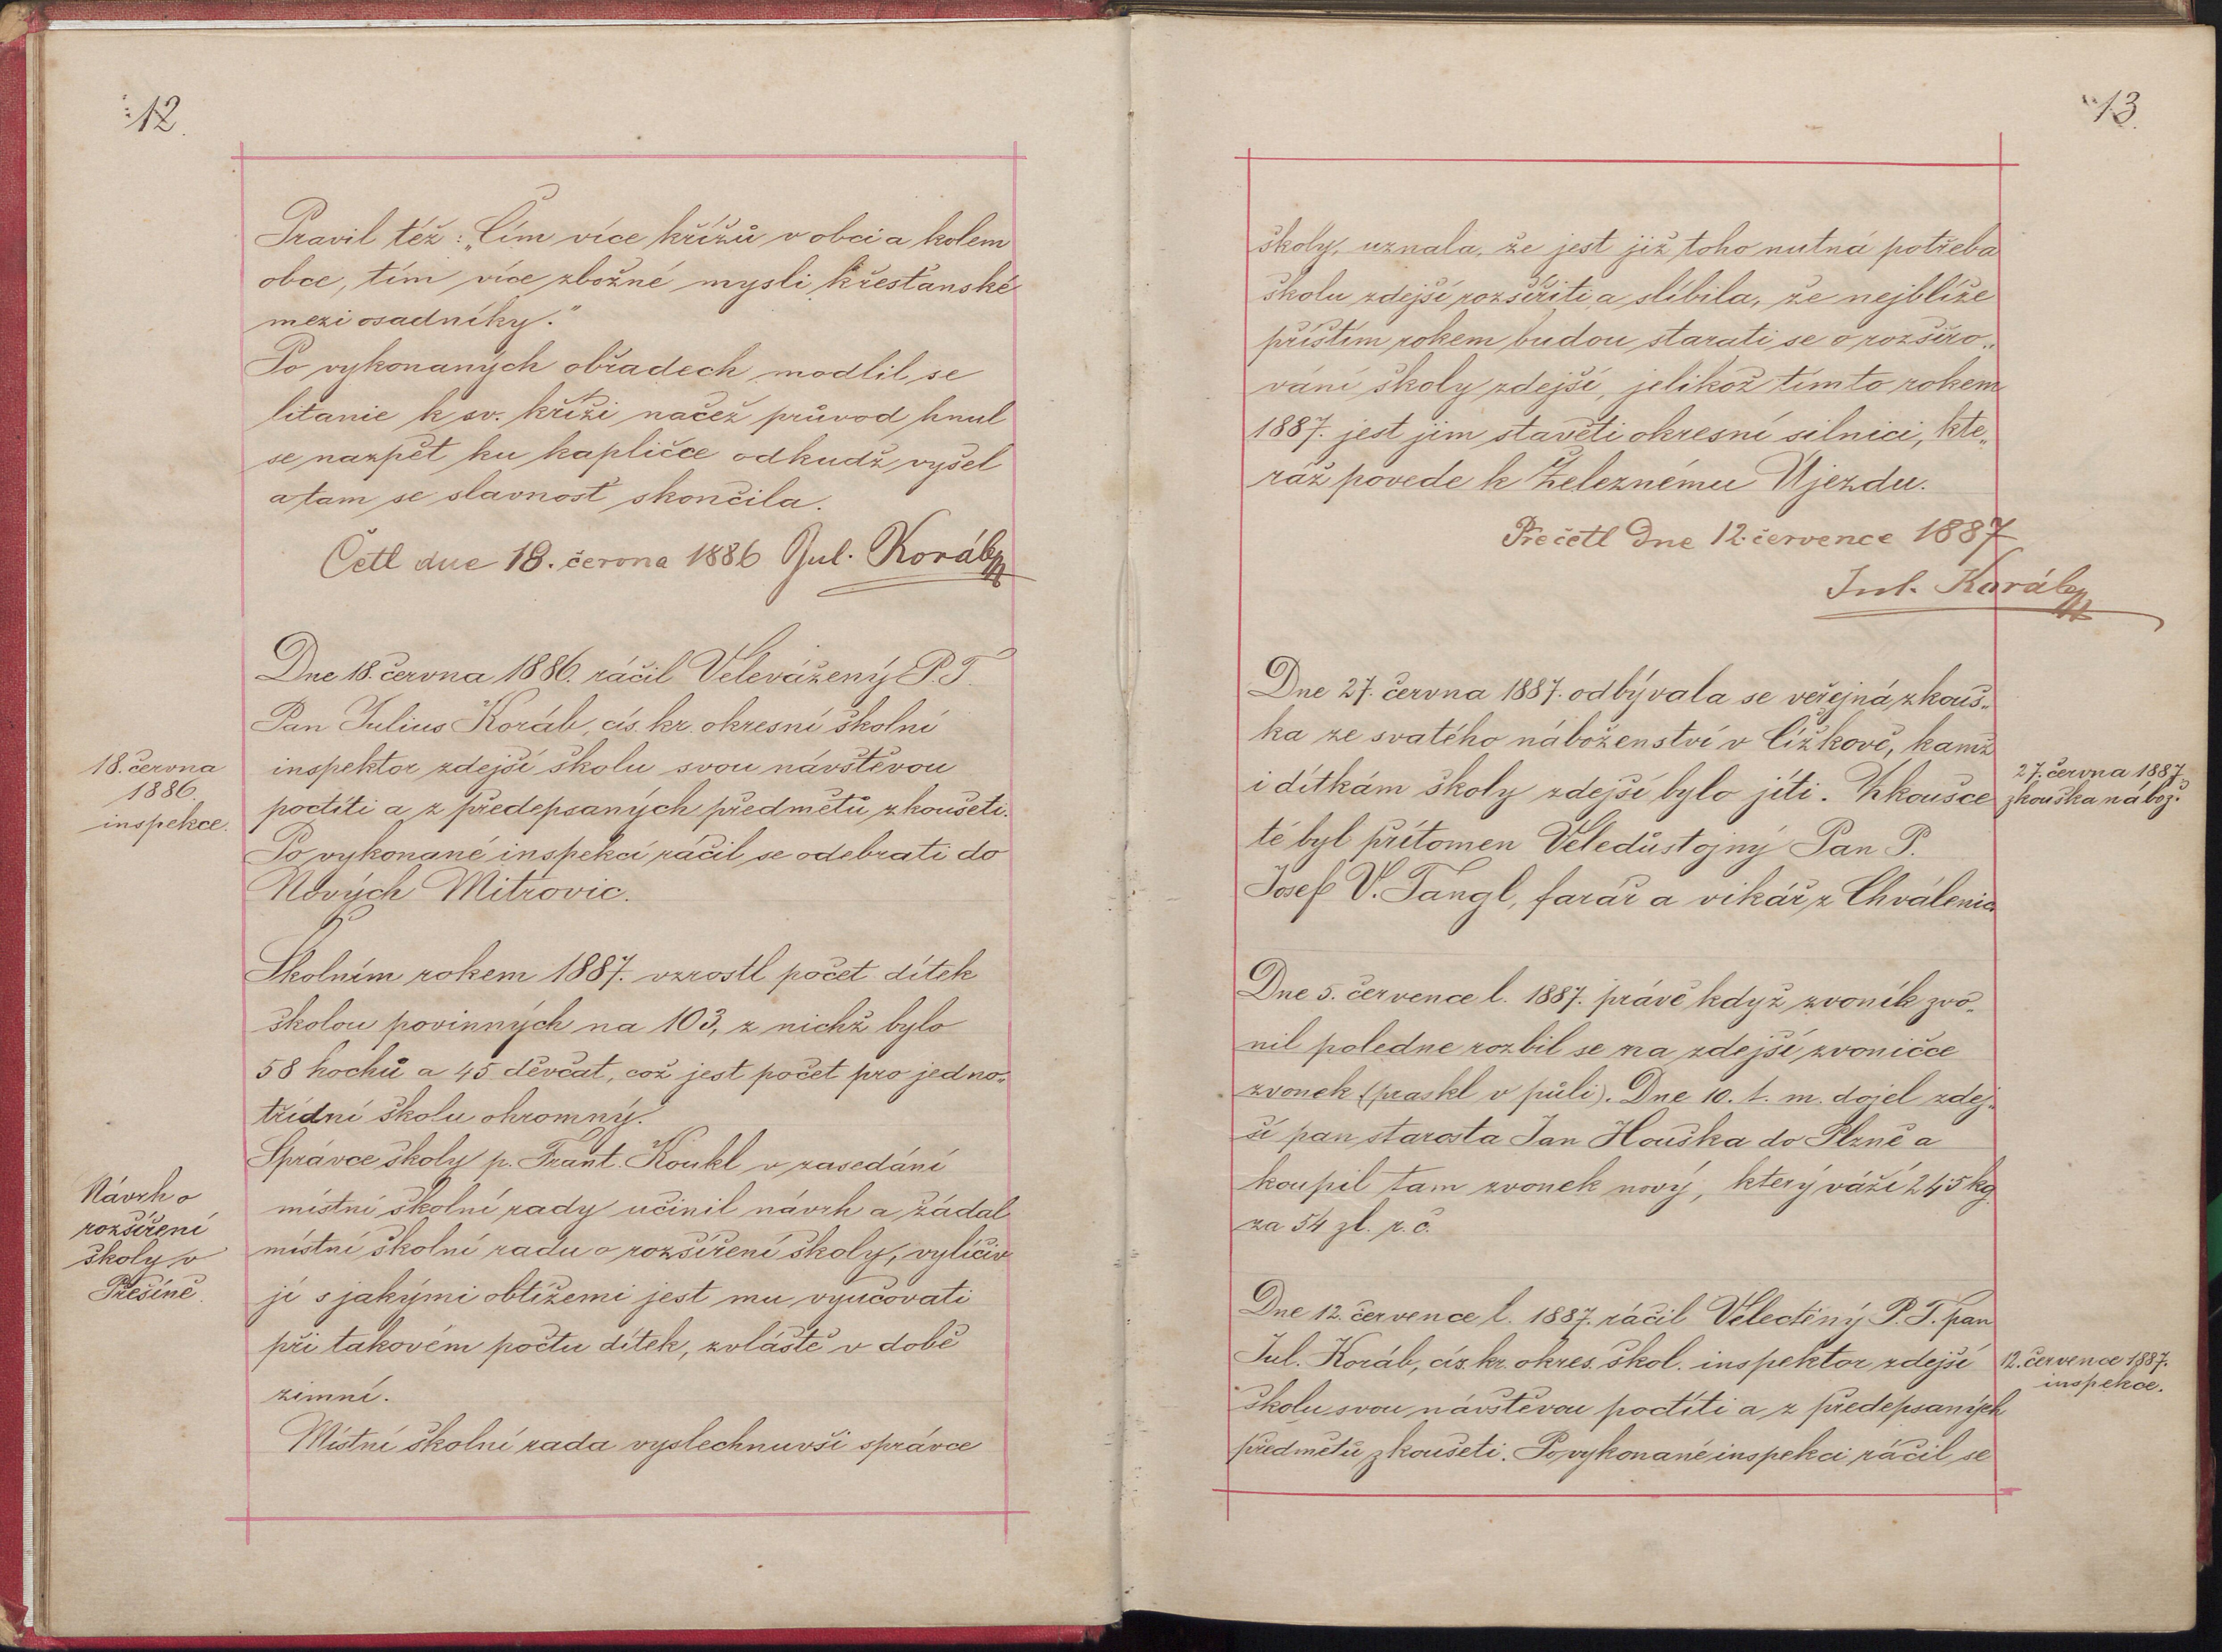 12.
Pravil též: „Čím více křížů v obci a kolem
obce, tím více zbožné mysli křesťanské
mezi osadníky."
Po vykonaných obřadech modlil se
litanie k sv. kříži načež průvod hnul
se nazpět ku kapličce odkudž vyšel
a tam se slavnost skončila.
Četl dne 18. června 1886 Jul. Koráb
Dne 18. června 1886. ráčil Velevážený P. T.
Pan Julius Koráb, cís. kr. okresní školní
18. června
1886.
inspekce.
inspektor zdejší školu svou návštěvou
poctíti a z předepsaných předmětů zkoušeti.
Po vykonané inspekci ráčil se odebrati do
Nových Mitrovic.
Školním rokem 1887. vzrostl počet dítek
školou povinných na 103, z nichž bylo
58 hochů a 45 děvčat, což jest počet pro jedno„
třídní školu ohromný.
Správce školy p. Frant. Koukl v zasedání
Návrh o
rozšíření
školy v
Přešíně.
místní školní rady učinil návrh a žádal
místní školní radu o rozšíření školy, vylíčiv
jí s jakými obtížemi jest mu vyučovati
při takovém počtu dítek, zvláště v době
zimní.
Místní školní rada vyslechnuvši správce
13.
školy, uznala, že jest již toho nutná potřeba
školu zdejší rozšířiti a slíbila, že nejblíže
příštím rokem budou starati se o rozšiřo„
vání školy zdejší, jelikož tímto rokem
1887. jest jim stavěti okresní silnici, kte„
ráž povede k Železnému Újezdu.
Přečetl dne 12. července 1887
Jul. Koráb
Dne 27. června 1887. odbývala se veřejná zkouš„
ka ze svatého náboženství v Čížkově, kamž
27. června 1887
zkouška nábož.
i dítkám školy zdejší bylo jíti. Zkoušce
té byl přítomen Veledůstojný Pan P.
Josef V. Tangl, farář a vikář z Chválenic.
Dne 5. července l. 1887. právě když zvoník zvo„
nil poledne rozbil se na zdejší zvoničce
zvonek (praskl v půli). Dne 10. t. m. dojel zdej„
ší pan starosta Jan Houška do Plzně a
koupil tam zvonek nový, který váží 245 kg.
za 54 zl. r. č.
Dne 12. července l. 1887. ráčil Velectěný P. T. pan
Jul. Koráb, cís. kr. okres. škol. inspektor zdejší
12. července 1887.
inspekce.
školu svou návštěvou poctíti a z předepsaných
předmětů zkoušeti. Po vykonané inspekci ráčil se